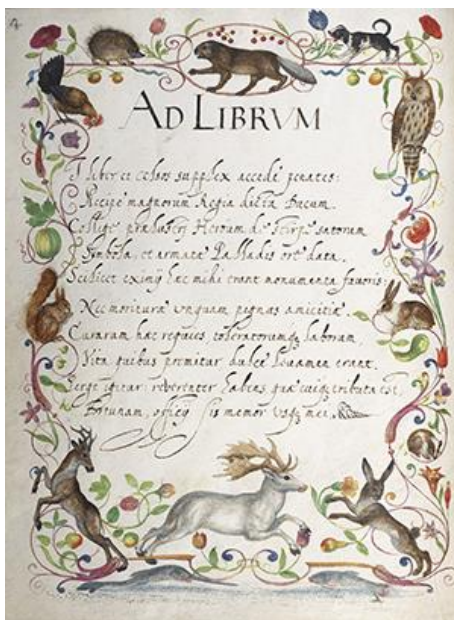 AD LIBRVM
I liber et celsos supplex accede penates:
magnorum Regia dicta Ducum.
Collige Heroum de stirpe satorum
Symbola, et armata Palladis data.
Scilicet eximij hæc mihi erunt monumenta favoris:
Nec moritura unquam pignus amicitiæ.
Curarum hæc requies, toleratorumq; laborum,
Vita quibus premitur dulce levamen erunt.
Perge igitur: reverenter habens, quæ cuiq; tributa est,
Fortunam, officij sis memor usq; mei.